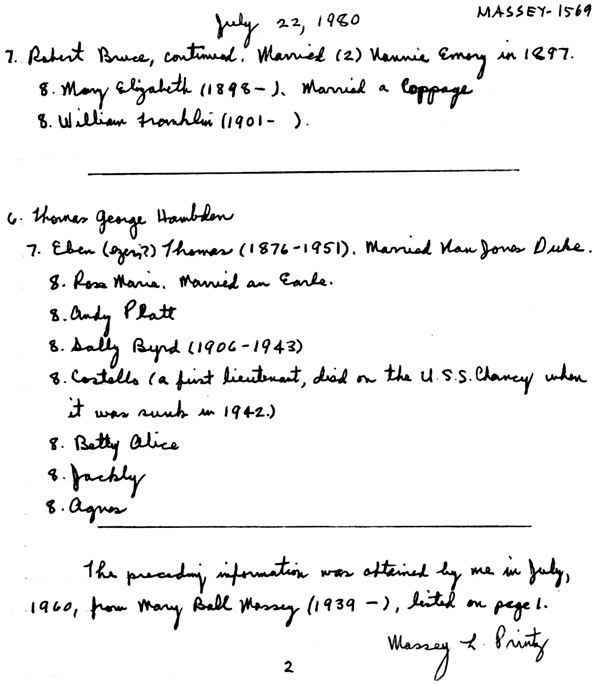 MASSEY-1569
July 22, 1980
7. Robert Bruce, continued. Married (2) Nannie Emory in 1897.
8. Mary Elizabeth (1898-). Married a Coppage
8. William Franklin (1901- ).
6. Thomas George Hambden
7. Eben (Ezer;?) Thomas (1876-1951). Married Nan Jones Duke.
8. Rose Marie. Married an Earle.
8. Andy Platt
8. Sally Byrd (1906-1943)
8. Costello (a first lieutenant, died on the U.S.S. Chancy when
it was sunk in 1942.)
8. Betty Alice
8. Jackly
8. Agnes
The preceding information was obtained by me in July,
1960, from Mary Ball Massey (1939 -), listed on page 1.
Massey L. Printz
2